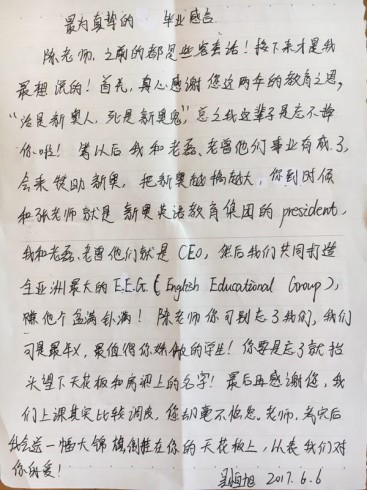 最为真挚的 毕业感言
陈老师，之前的都是些客套话！接下来才是我
最想说的！首先，真心感谢您这两年的教育之恩，
“活是新奥人，死是新奥鬼”，总之我这辈子是忘不掉
你啦！等以后我和老磊、老曾他们事业有成了，
会来赞助新奥，把新奥越搞越大，你到时候
和张老师就是新奥英语教育集团的president，
我和老磊、老曾他们就是CEO，然后我们共同打造
全亚洲最大的E.E.G.（English Educational Group），
赚他个盆满钵满！陈老师你可别忘了我们，我们
可是最牛X，最值得你骄傲的学生！你要是忘了就抬
头望下天花板和房梁上的名字！最后再感谢您，我
们上课其实比较调皮，您却毫不倦怠。老师，高考后
我会送一幅大锦旗，倒挂在你的天花板上，以表我们对
你的爱！
2017.6.6